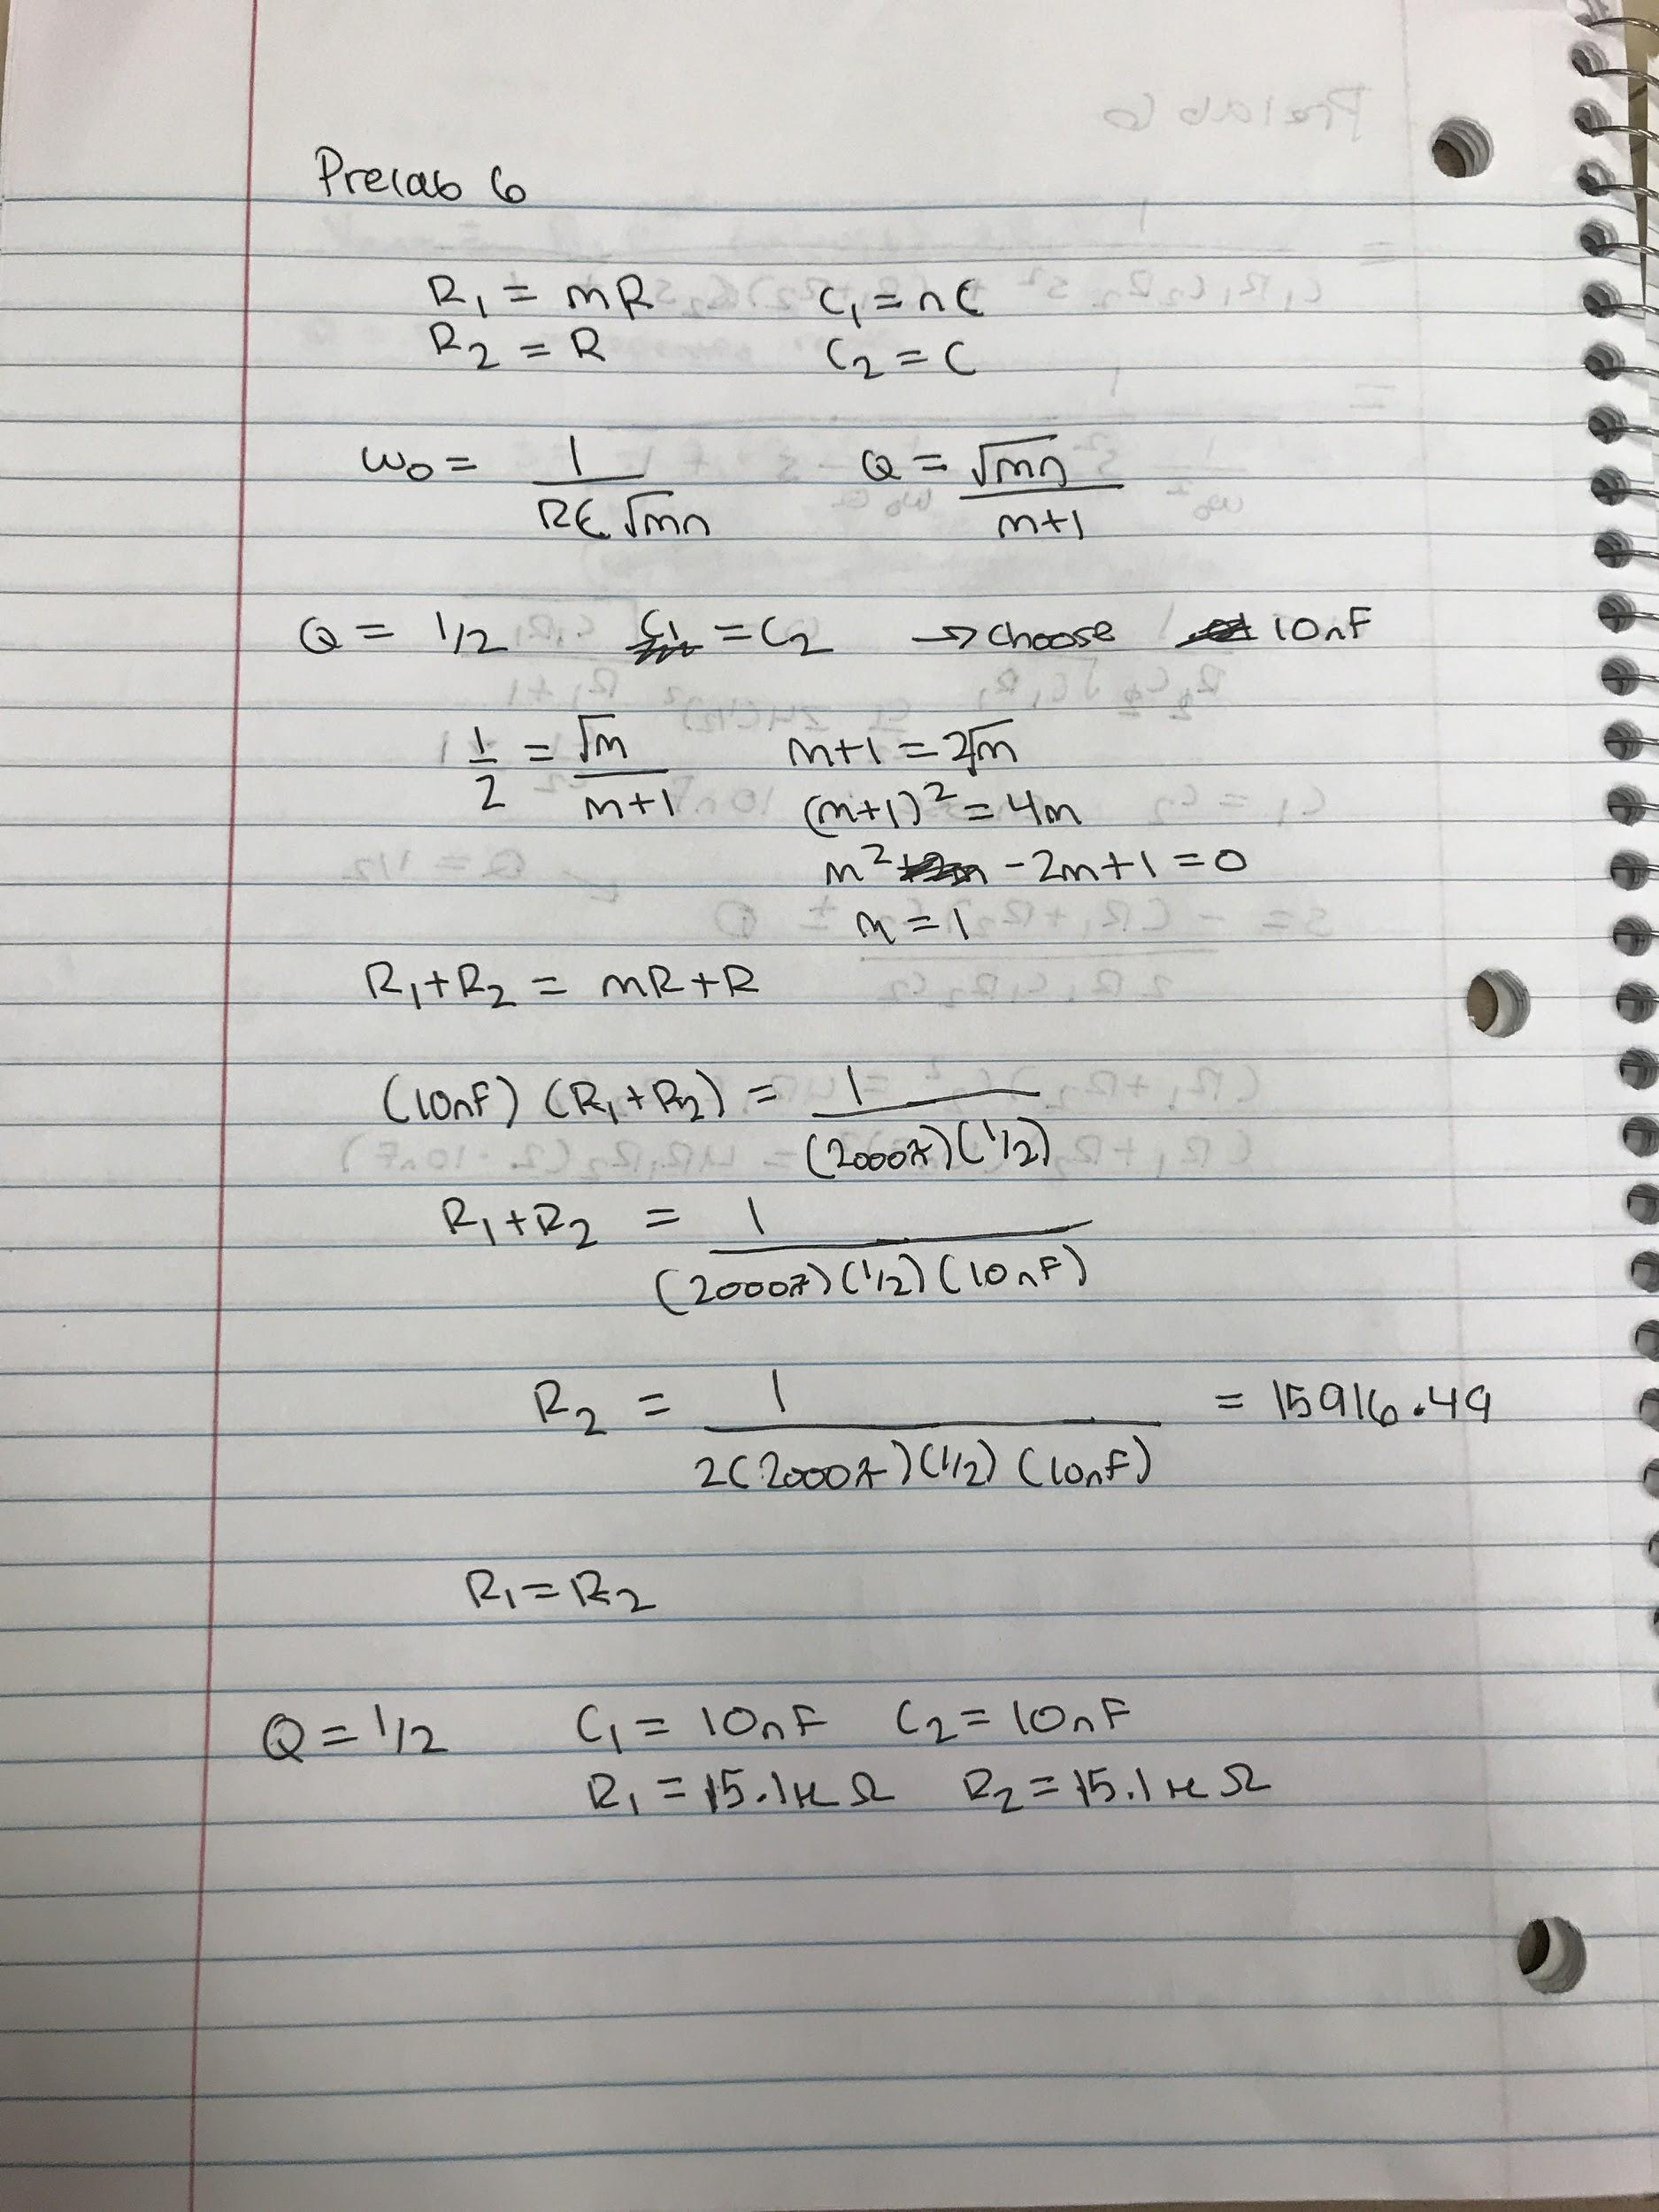 Prelab 6
R₁ = mR C₁ = nC
R₂ = R C₂ = C
ω₀ = 1/(RC√mn) Q = √mn/(m+1)
Q = 1/2 C₁ = C₂ → choose 10nF
1/2 = √m/(m+1) m+1 = 2√m
(m+1)² = 4m
m² - 2m+1 = 0
m = 1
R₁+R₂ = mR+R
(10nF) (R₁+R₂) = 1/((2000π)(1/2))
R₁+R₂ = 1/((2000π)(1/2)(10nF))
R₂ = 1/(2(2000π)(1/2)(10nF)) = 15916.49
R₁=R₂
Q = 1/2 C₁ = 10nF C₂ = 10nF
R₁ = 15.1kΩ R₂ = 15.1kΩ